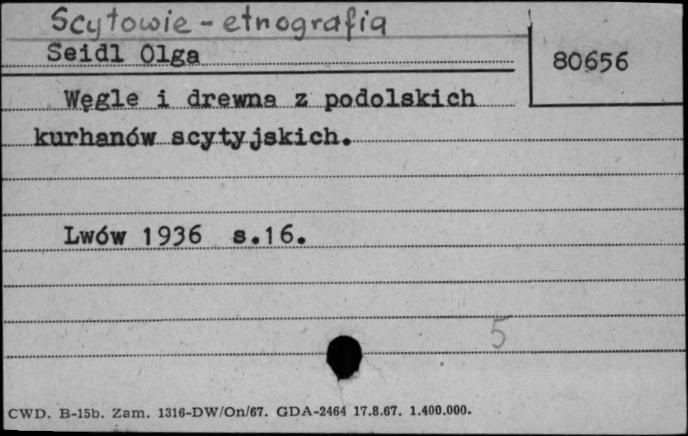 Scytowie - etnografia
Seidl Olga
80656
Węgle i drewna z podolskich
kurhanów scytyjskich.
Lwów 1936 s.16.
5
CWD. B-15b. Zam. 1316-DW/On/67. GDA-2464 17.8.67. 1.400.000.